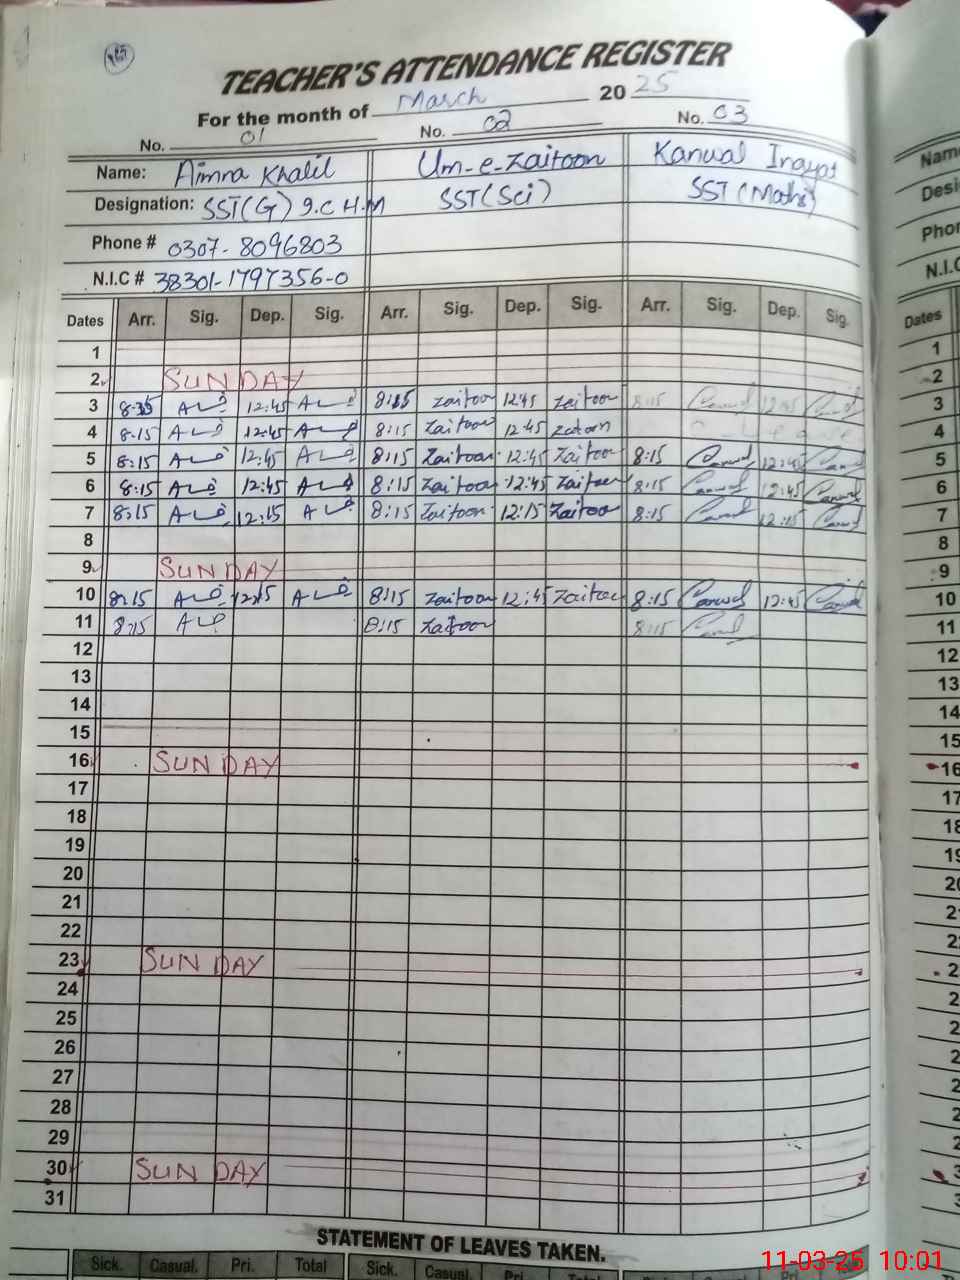 TEACHER'S ATTENDANCE REGISTER
For the month of March 2025
No. 01 No. 02 No. 03
Name: Aimna Khalil Um-e-Zaitoon Kanwal Inayat
Designation: SST(G) I.C H.M SST(Sci) SST(Maths)
Phone # 0307-8096803
N.I.C # 38301-1797356-0
Dates Arr. Sig. Dep. Sig. Arr. Sig. Dep. Sig. Arr. Sig. Dep. Sig.
1
2 SUNDAY
3 12:45 8:15 Zaitoon 12:45 Zaitoon 8:15 12:45
4 8:15 12:45 8:15 Zaitoon 12:45 Zaitoon
5 8:15 12:45 8:15 Zaitoon 12:45 Zaitoon 8:15 12:45
6 8:15 12:45 8:15 Zaitoon 12:45 Zaitoon 8:15 12:45
7 8:15 12:15 8:15 Zaitoon 12:15 Zaitoon 8:15 12:15
8
9 SUNDAY
10 8:15 8:15 Zaitoon 12:45 Zaitoon 8:15 12:45
11 8:15 8:15 Zaitoon 8:15
12
13
14
15
16 SUNDAY
17
18
19
20
21
22
23 SUNDAY
24
25
26
27
28
29
30 SUNDAY
31
STATEMENT OF LEAVES TAKEN.
Sick. Casual. Pri. Total Sick. Casual. Pri. Total Sick. Casual. Pri.
11-03-25 10:01